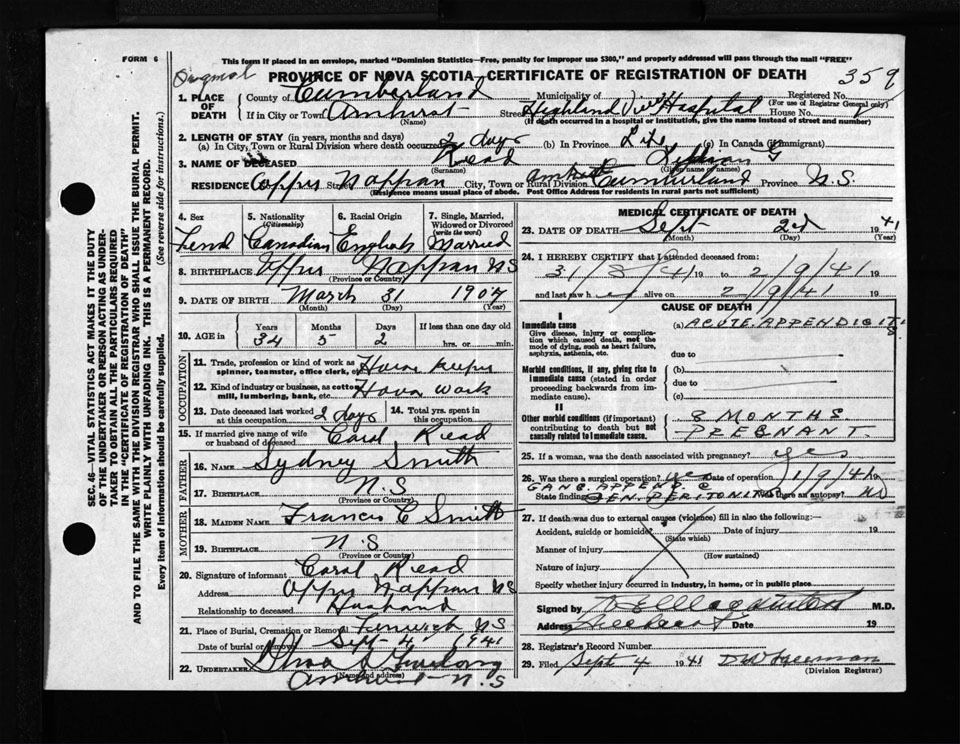 FORM 6
This form if placed in an envelope, marked "Dominion Statistics—Free, penalty for improper use $300," and properly addressed will pass through the mail "FREE"
PROVINCE OF NOVA SCOTIA—CERTIFICATE OF REGISTRATION OF DEATH 359
1. PLACE OF DEATH County of Cumberland Municipality of Registered No. (For use of Registrar General only)
If in City or Town Amherst (Name) Street Highland View Hospital House No.
(If death occurred in a hospital or institution, give the name instead of street and number)
2. LENGTH OF STAY (in years, months and days)
(a) In City, Town or Rural Division where death occurred 2 days (b) In Province Life (c) In Canada (if immigrant)
3. NAME OF DECEASED Read (Surname) Lillian G (Given name or names)
RESIDENCE Upper Nappan Street City, Town or Rural Division Amherst Cumberland Province N.S.
(Residence means usual place of abode. Post Office Address for residents in rural parts not sufficient)
4. Sex 5. Nationality (Citizenship) Canadian 6. Racial Origin English 7. Single, Married, Widowed or Divorced (write the word) Married
8. BIRTHPLACE Upper Nappan NS (Province or Country)
9. DATE OF BIRTH March 31 1907 (Month) (Day) (Year)
10. AGE in Years 34 Months 5 Days 2 If less than one day old hrs. or min.
OCCUPATION
11. Trade, profession or kind of work as spinner, teamster, office clerk, etc. House keeper
12. Kind of industry or business, as cotton mill, lumbering, bank, etc. work
13. Date deceased last worked at this occupation 2 days 14. Total yrs. spent in this occupation
15. If married give name of wife or husband of deceased Carol Read
FATHER
16. NAME Sydney Smith
17. BIRTHPLACE N.S (Province or Country)
MOTHER
18. MAIDEN NAME Francis C Smith
19. BIRTHPLACE N.S (Province or Country)
20. Signature of informant Carol Read
Address Upper Nappan NS
Relationship to deceased Husband
21. Place of Burial, Cremation or Removal Fenwick NS
Date of burial or removal Sept 4 1941
22. UNDERTAKER (Name and address)
Amherst N.S
MEDICAL CERTIFICATE OF DEATH
23. DATE OF DEATH Sept 2nd 1941 (Month) (Day) (Year)
24. I HEREBY CERTIFY that I attended deceased from:
31/8/41 19 to 2/9/41 19
and last saw h alive on 2/9/41 19
CAUSE OF DEATH
I
Immediate cause (a) ACUTE APPENDICITIS
Give disease, injury or complication which caused death, not the mode of dying, such as heart failure, asphyxia, asthenia, etc.
due to
Morbid conditions, if any, giving rise to immediate cause (stated in order proceeding backwards from immediate cause). (b)
due to
(c)
II
Other morbid conditions (if important) contributing to death but not causally related to immediate cause. 3 MONTHS PREGNANT
25. If a woman, was the death associated with pregnancy? yes
26. Was there a surgical operation? yes Date of operation 1/9/41
State findings GANG. APPEND. & GEN. PERITONITIS Was there an autopsy? No
27. If death was due to external causes (violence) fill in also the following:—
Accident, suicide or homicide? (State which) Date of injury 19
Manner of injury (How sustained)
Nature of injury
Specify whether injury occurred in industry, in home, or in public place
Signed by M.D.
Address Date 19
28. Registrar's Record Number
29. Filed Sept 4 1941 (Division Registrar)
SEC. 46—VITAL STATISTICS ACT MAKES IT THE DUTY
OF THE UNDERTAKER OR PERSON ACTING AS UNDER-
TAKER TO OBTAIN ALL THE PARTICULARS REQUIRED
IN THE "CERTIFICATE OF REGISTRATION OF DEATH"
AND TO FILE THE SAME WITH THE DIVISION REGISTRAR WHO SHALL ISSUE THE BURIAL PERMIT.
WRITE PLAINLY WITH UNFADING INK. THIS IS A PERMANENT RECORD.
Every item of information should be carefully supplied. (See reverse side for instructions.)